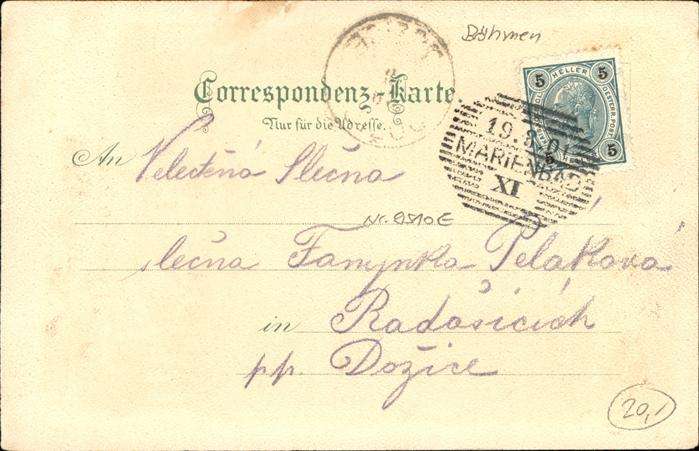 Böhmen
Correspondenz-Karte.
Nur für die Adresse.
5 HELLER 5
5 5
19.8.01
MARIENBAD
XI
An Velectěná Slečna
Nr. 8510 E
slečna Fanynka Peláková
in Radošicích
pp. Dožice
20,1